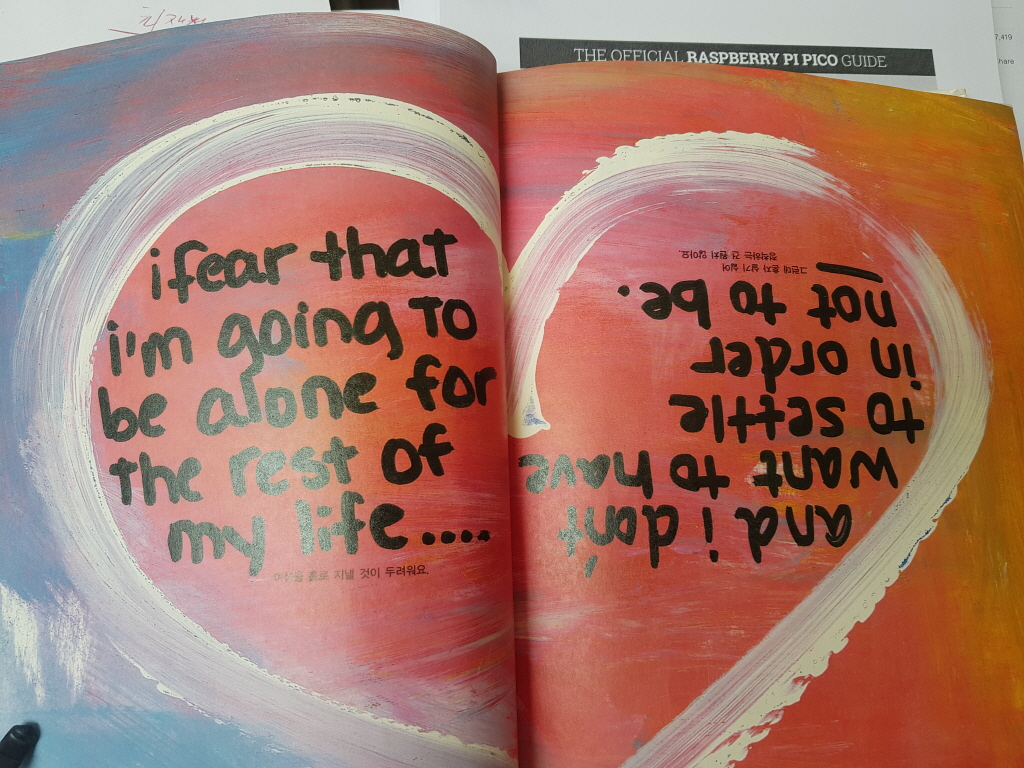 THE OFFICIAL RASPBERRY PI PICO GUIDE
7,419
hare
i fear that
i'm going to
be alone for
the rest of
my life....
여생을 홀로 지낼 것이 두려워요.
and i don't
want to have
to settle
in order
not to be.
그런데 혼자 살기 싫어
정착하는 건 원치 않아요.